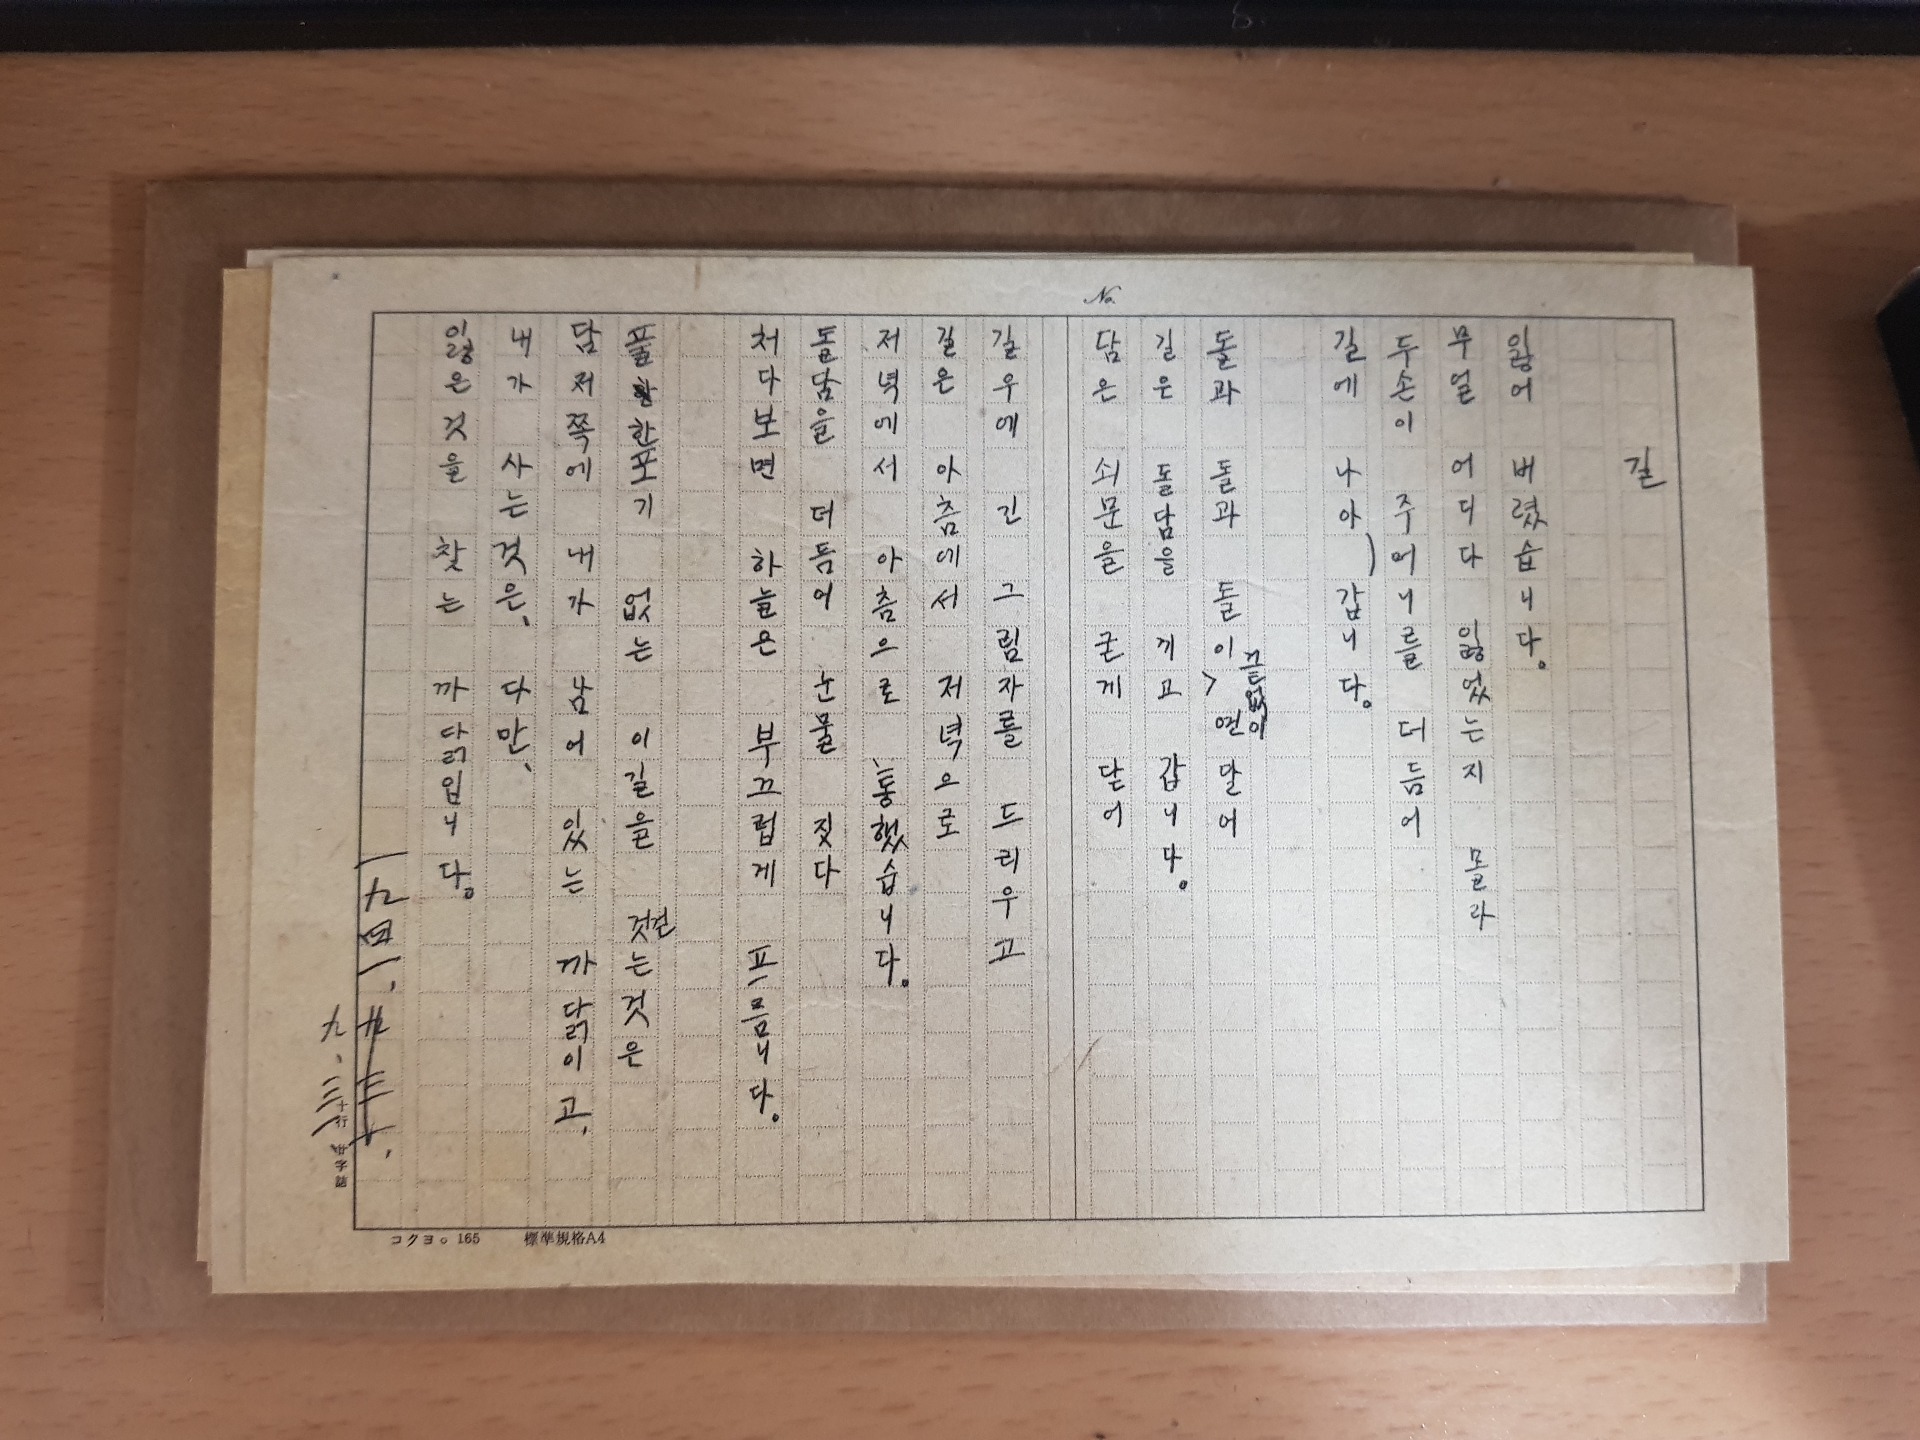 No.
길
잃어 버렸습니다。
무얼 어디다 잃었는지 몰라
두손이 주머니를 더듬어
길에 나아 갑니다。
돌과 돌과 돌이 끝없이 연달어
길은 돌담을 끼고 갑니다。
담은 쇠문을 굳게 닫어
길우에 긴 그림자를 드리우고
길은 아츰에서 저녁으로
저녁에서 아츰으로 통했습니다。
돌담을 더듬어 눈물 짓다
처다보면 하늘은 부끄럽게 프름니다。
풀 한포기 없는 이길을 걷는것은
담저쪽에 내가 남어 있는 까닭이고,
내가 사는것은、 다만、
잃은것을 찾는 까닭입니다。
一九四一、
九、三一
コクヨ。165 標準規格A4